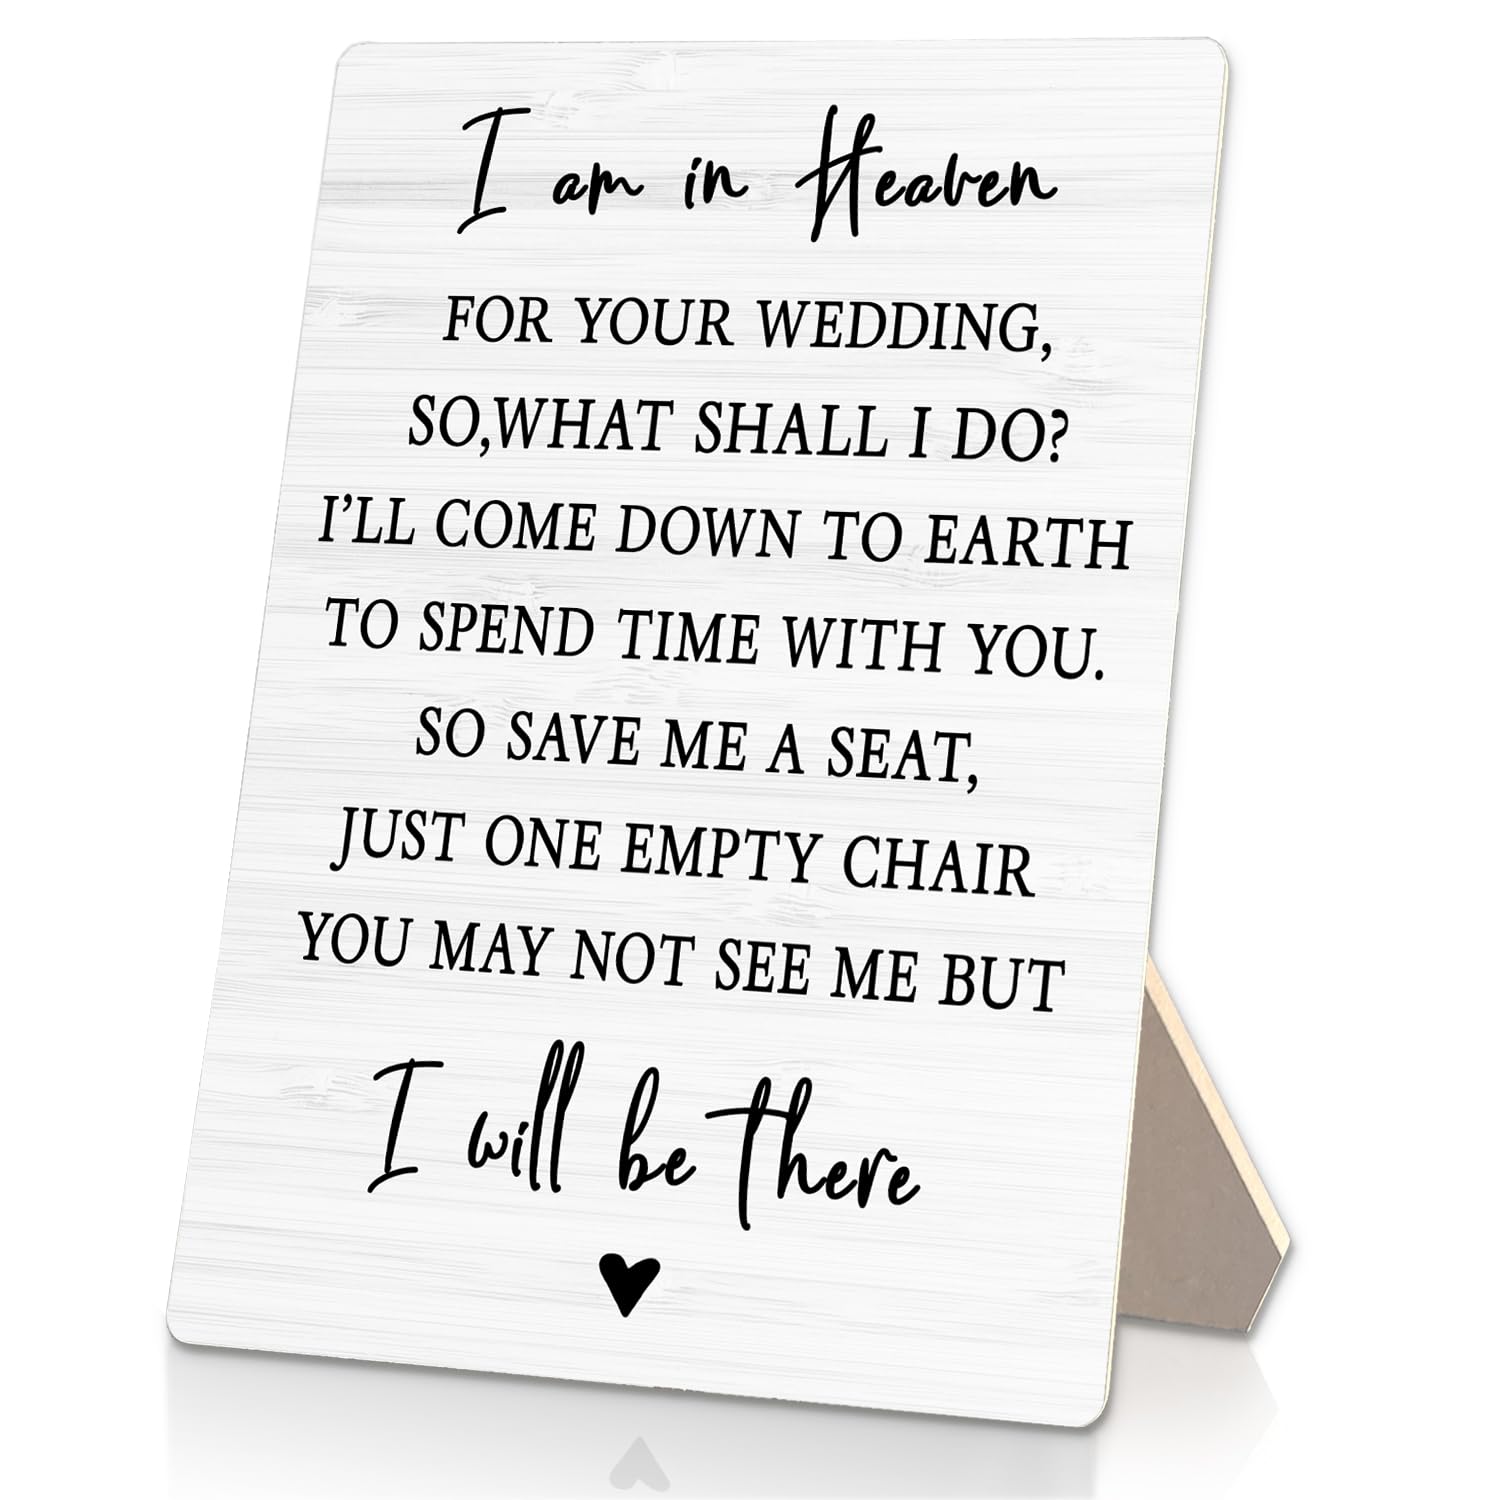 I am in Heaven
FOR YOUR WEDDING,
SO,WHAT SHALL I DO?
I'LL COME DOWN TO EARTH
TO SPEND TIME WITH YOU.
SO SAVE ME A SEAT,
JUST ONE EMPTY CHAIR
YOU MAY NOT SEE ME BUT
I will be there